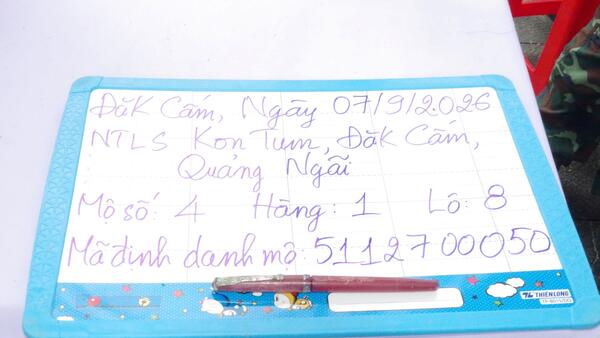 Đăk Cấm, Ngày 07/9/2026
NTLS Kon Tum, Đăk Cấm,
Quảng Ngãi
Mộ số: 4 Hàng: 1 Lô: 8
Mã định danh mộ: 5112700050
THIÊN LONG